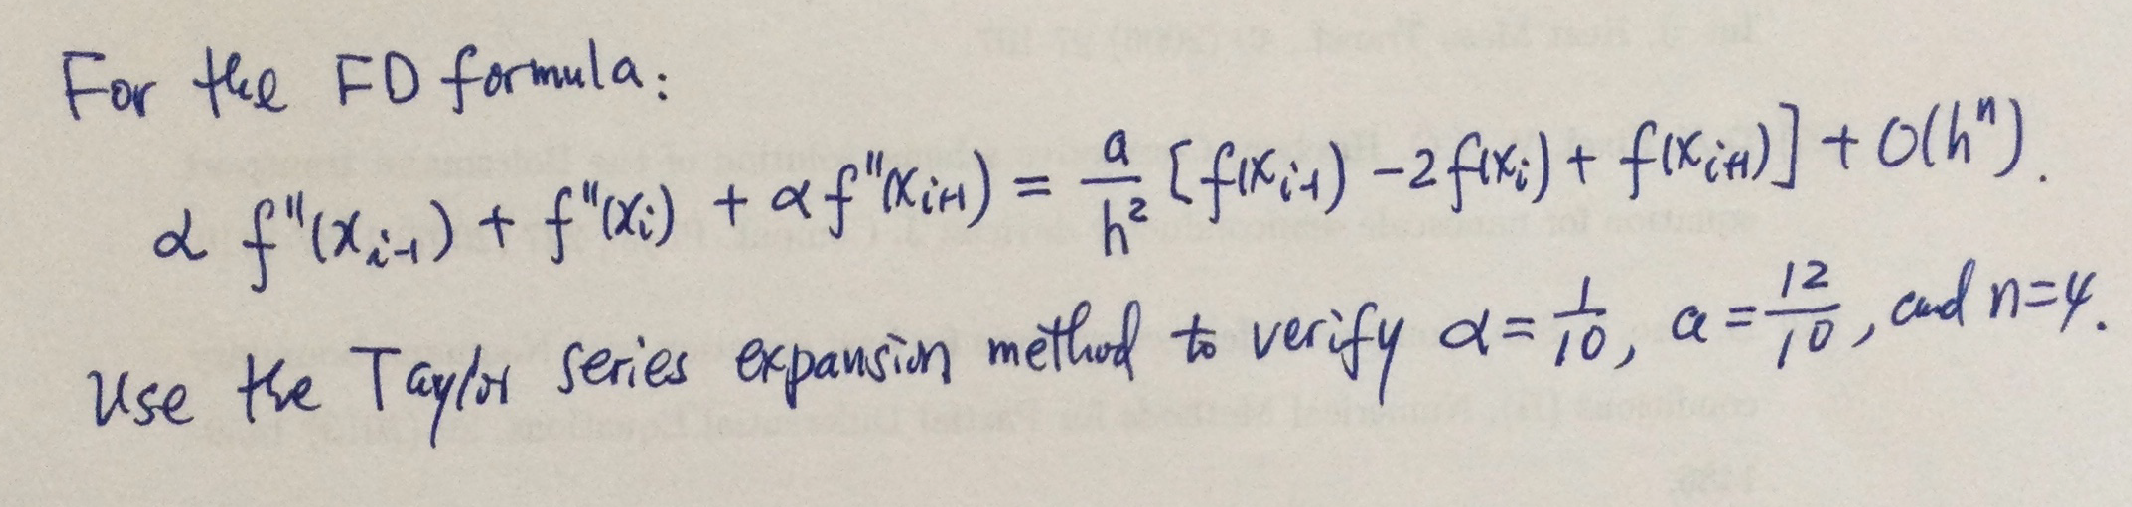 For the FD formula:
α f''(x_{i-1}) + f''(x_i) + α f''(x_{i+1}) = \frac{a}{h^2} [f(x_{i-1}) - 2f(x_i) + f(x_{i+1})] + O(h^n).
Use the Taylor series expansion method to verify α = \frac{1}{10}, a = \frac{12}{10}, and n=4.